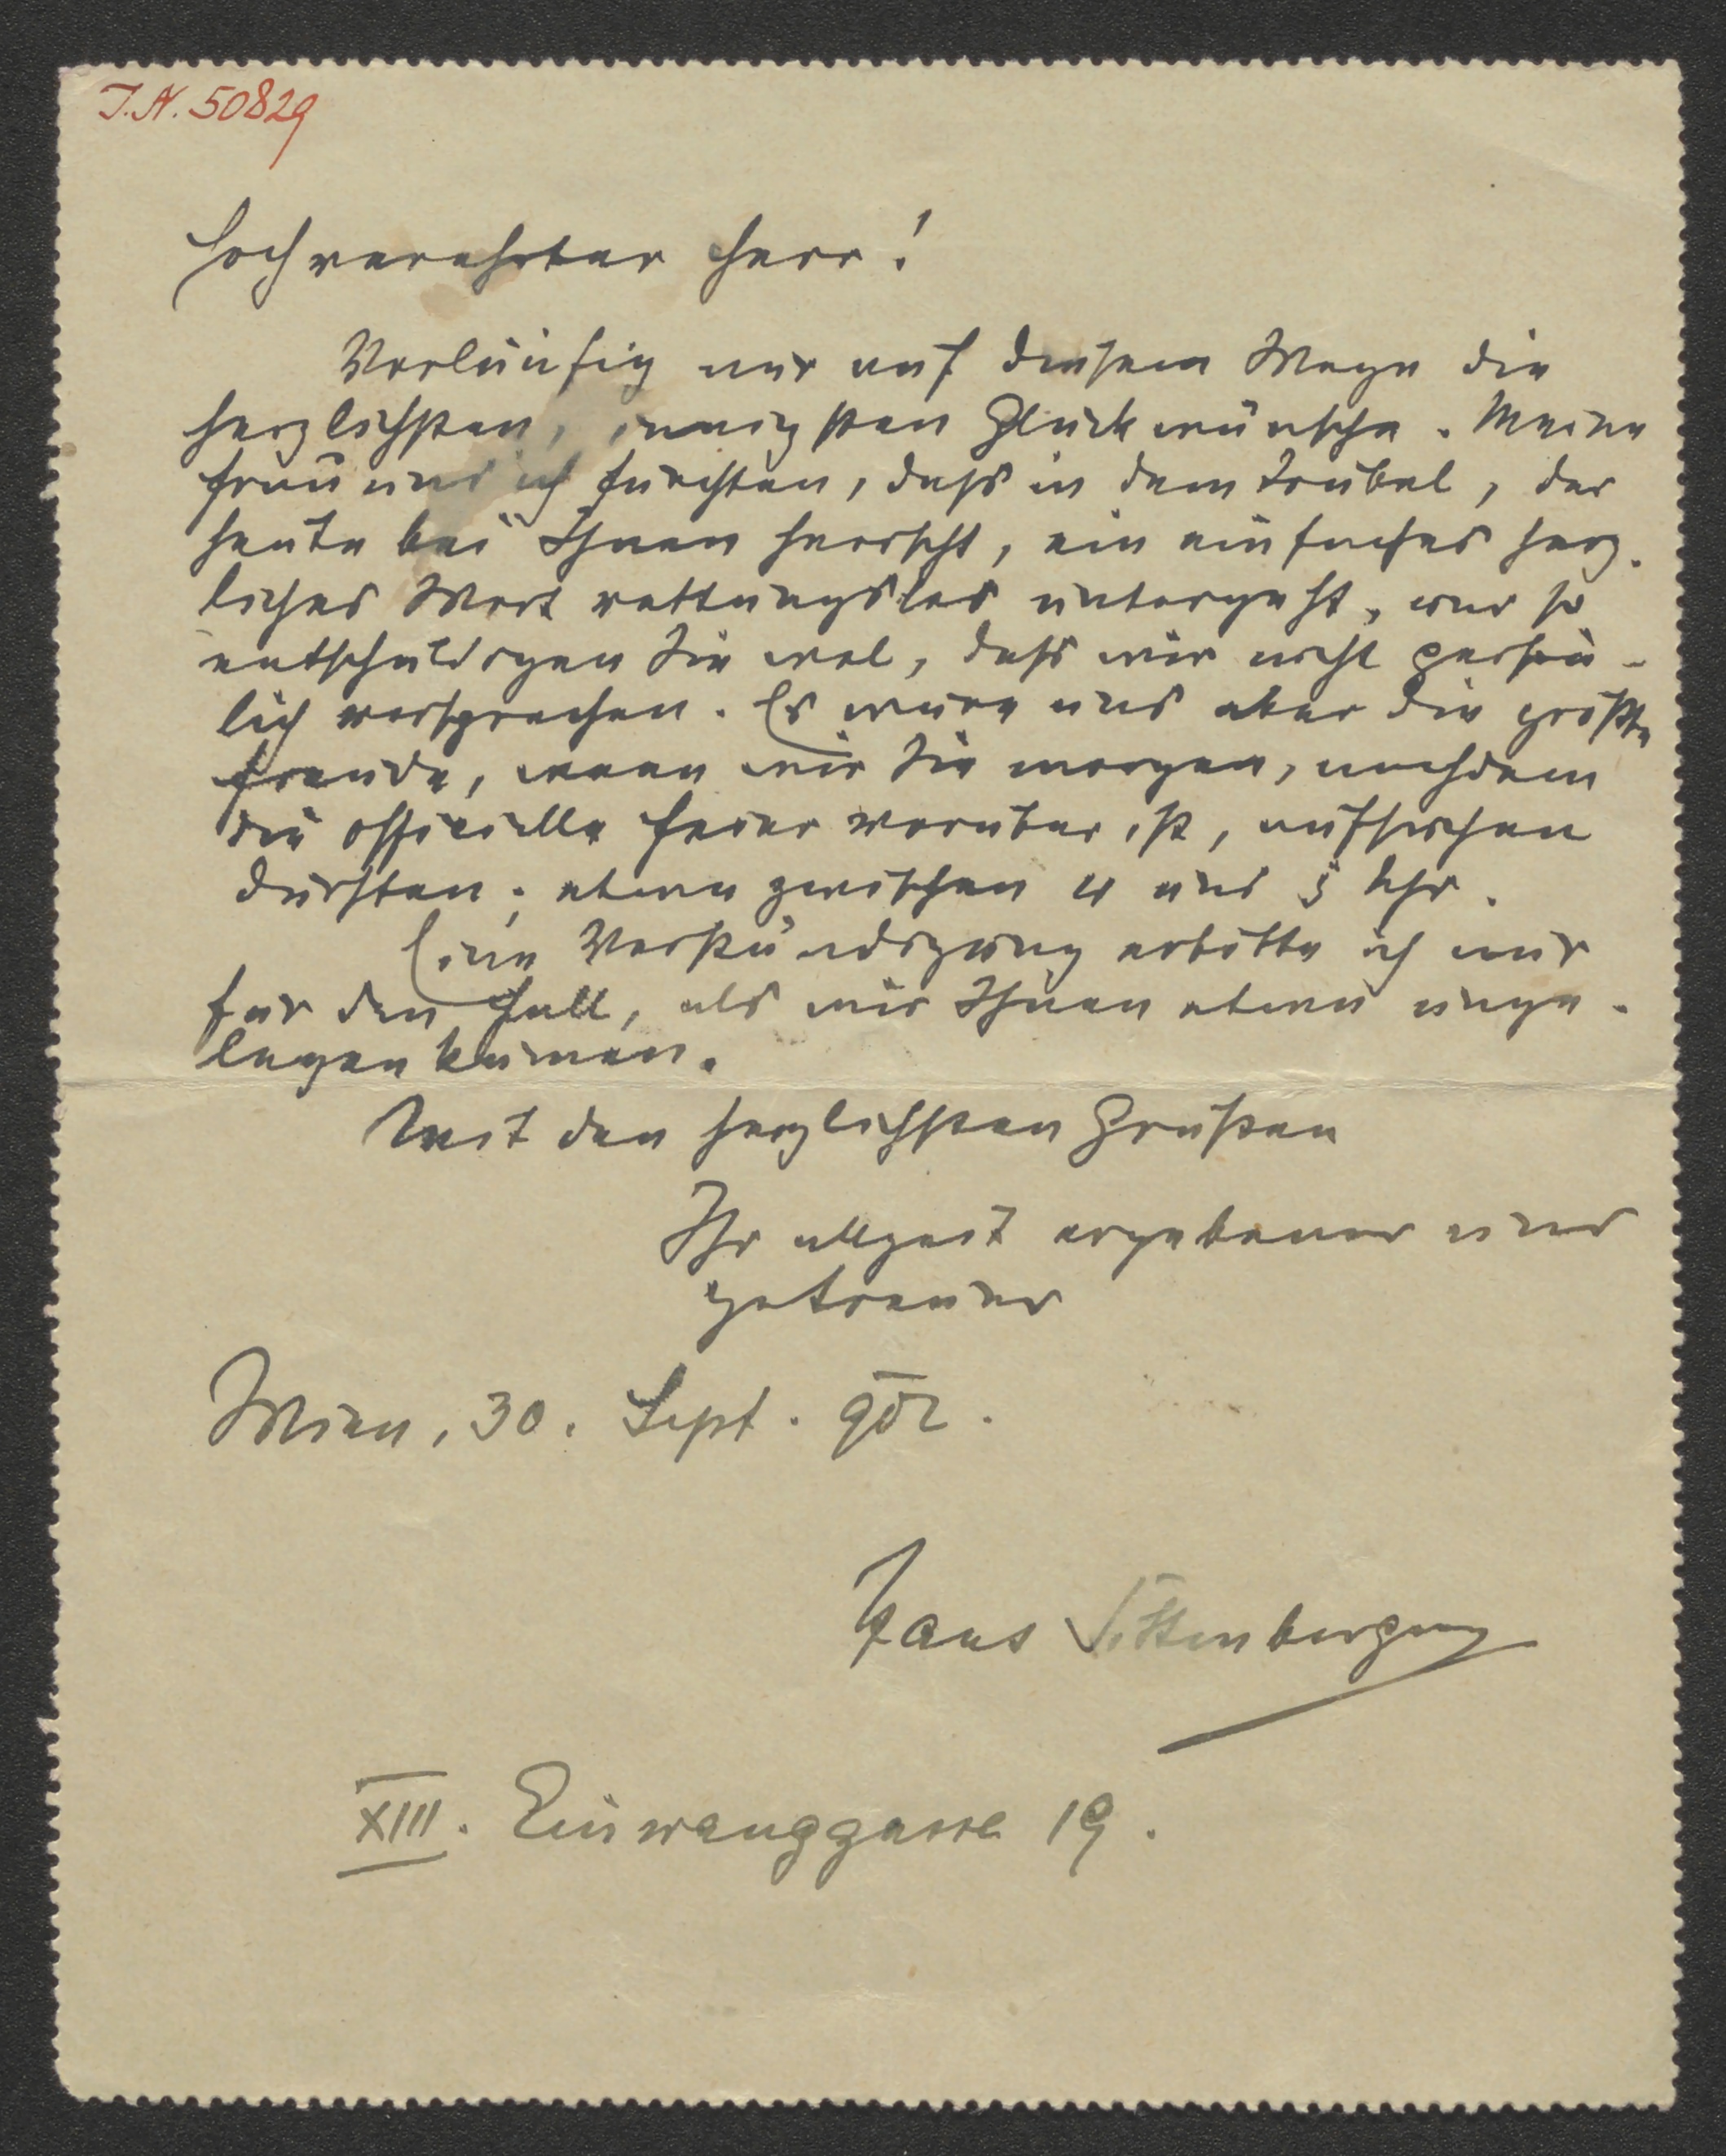 I.N. 50829
Hochverehrter Herr!
Vorläufig nur auf diesem Wege die
herzlichsten, innigsten Glückwünsche. Meine
Frau und ich fürchten, daß in dem Trubel, der
heute bei Ihnen herrscht, ein einfaches herz-
liches Wort rettungslos untergeht, und so
entschuldigen Sie wol, daß wir nicht persön-
lich vorsprechen. Es wäre uns aber die größte
Freude, wenn wir Sie morgen, nachdem
die officielle Feier vorüber ist, aufsuchen
dürften; etwa zwischen 4 und 5 Uhr.
Eine Verständigung erbitte ich nur
für den Fall, als wir Ihnen etwa unge-
legen kämen.
Mit den herzlichsten Grüßen
Ihr allzeit ergebener und
getreuer
Wien, 30. Sept. 902.
Hans Sittenberger
XIII. Einwanggasse 19.